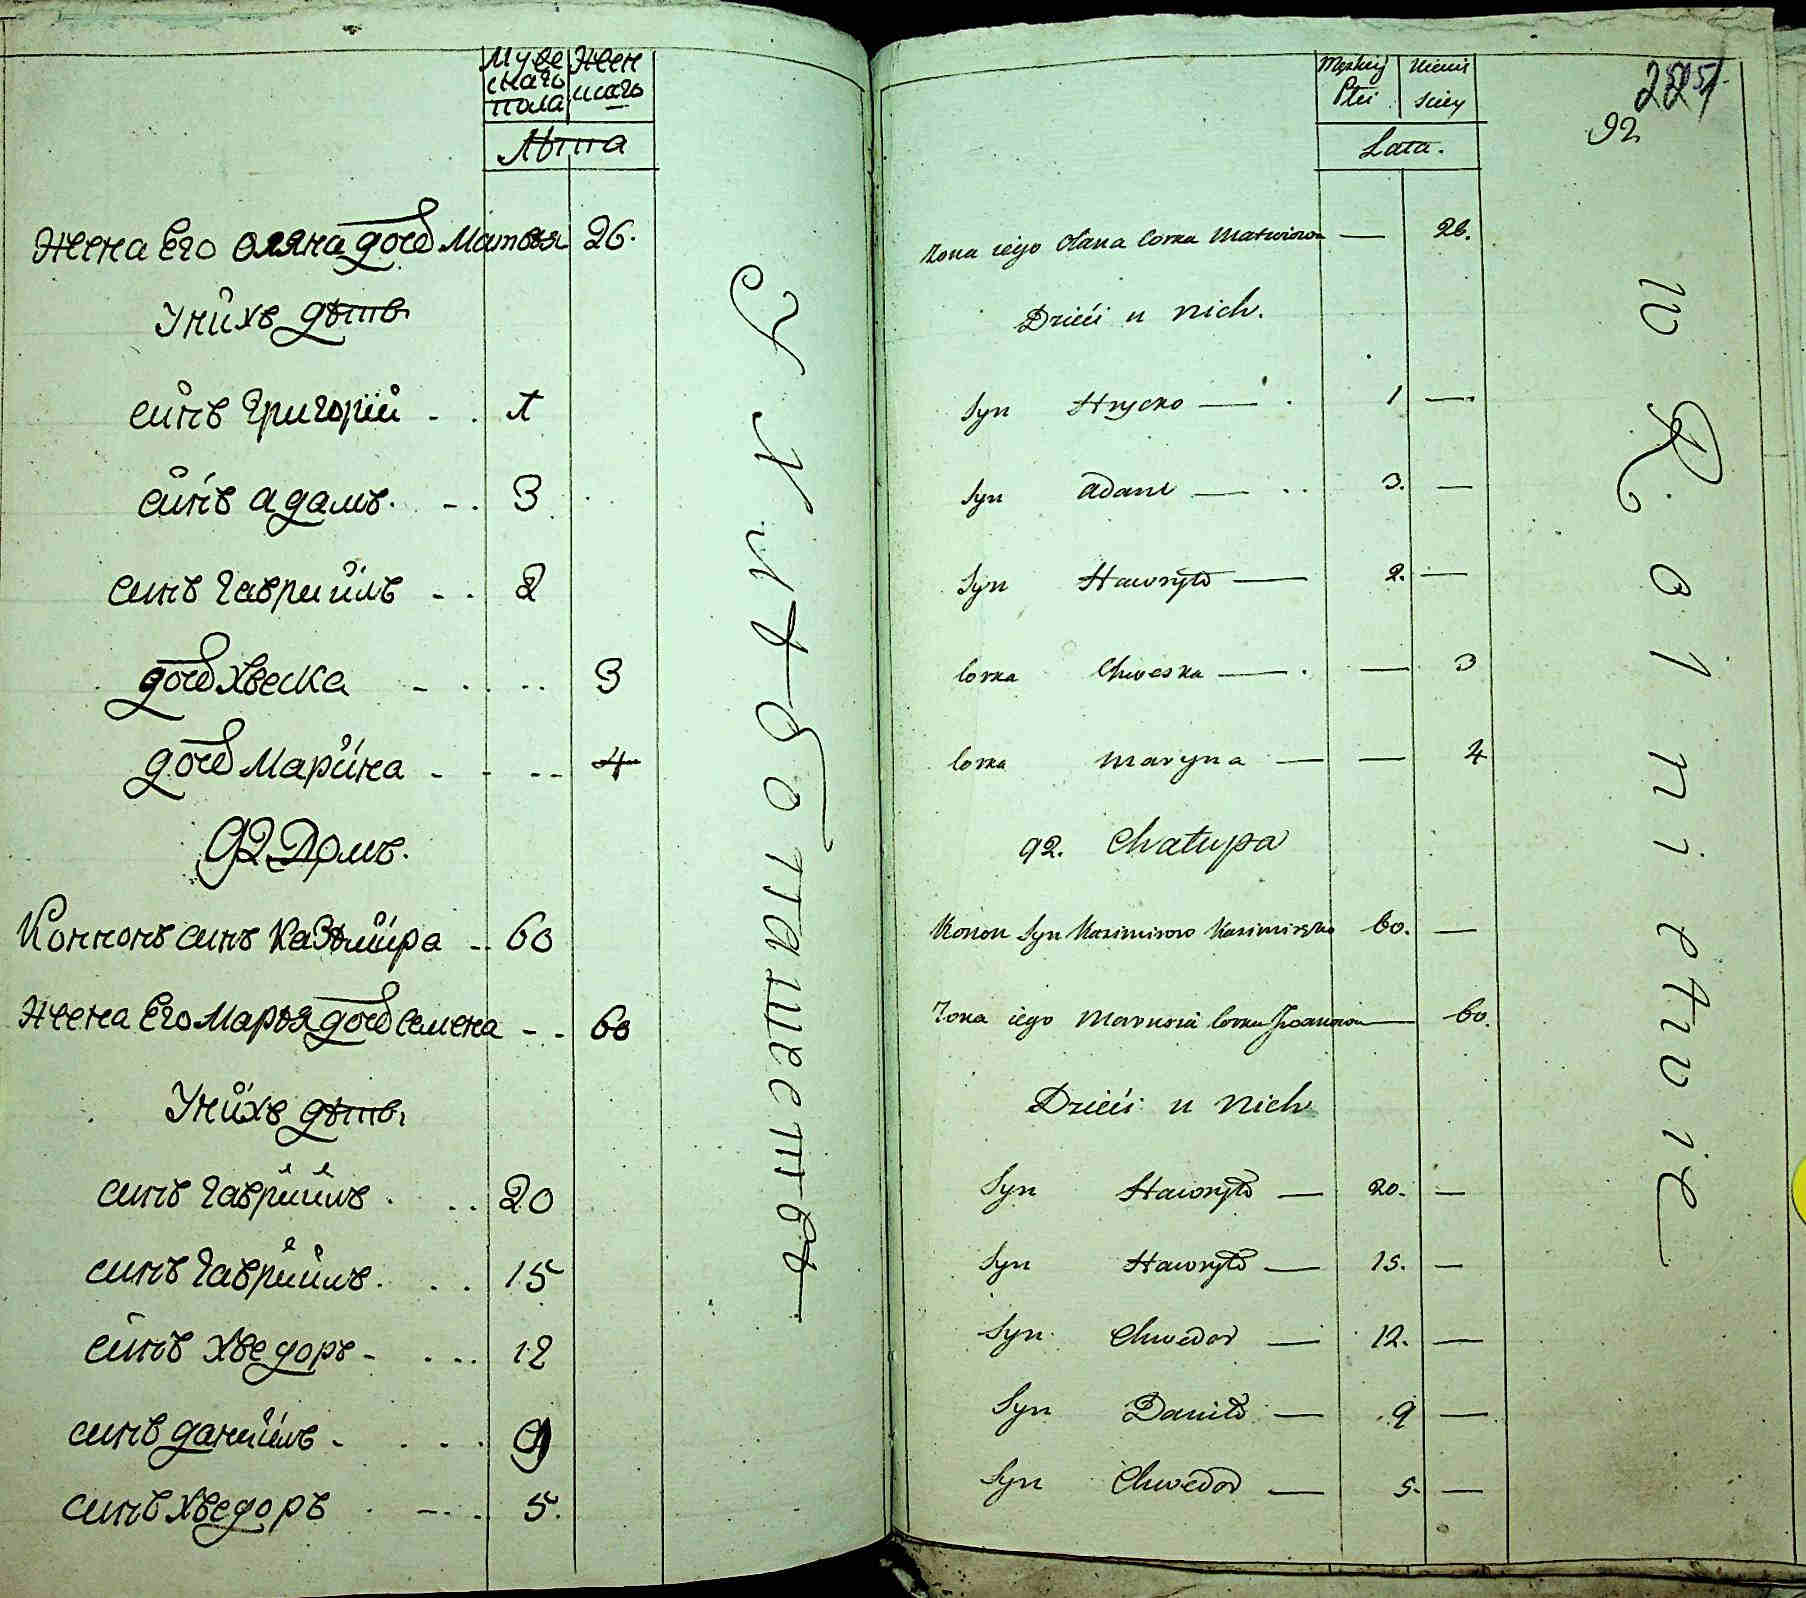 Муже Жен
скаго скаго
пола
Лѣта
Жена Его Оляна дочь Матвѣя 26.
Унихъ дѣти
синъ Григорій - . 1
синъ адамъ. - . 3
синъ гавріилъ - . 2
дочь Хвеска - . . .. 3
дочь Марина - - -- 4
92 Домъ.
Коннонъ синъ Казѣмира -- 60
Жена Его Марья дочь семена - - 60
Унихъ дѣти
синъ гавріилъ . .. 20
синъ гавріилъ. .. 15
синъ хведоръ - ... 12
синъ даниилъ - . . . 9
синъ хведоръ . -.. 5.
У хлѣбопашествѣ
Męskiey Niewie
Płci sciey
Lata.
92
Żona iego Olana Corka Matwiiowa — 26.
Dzieci u nich.
Syn Hrycko — . 1 —.
Syn Adam — .. 3. —
Syn Hawryło — 2. —
Corka Chweska — . — 3
Corka Maryna — — 4
92. Chałupa
Konon Syn Kazimirowo 60. —
Żona iego Marusia Corka — 60.
Dzieci u nich
Syn Hawryło — 20. —
Syn Hawryło — 15. —
Syn Chwedor — 12. —
Syn Daniło — 9 —
Syn Chwedor — 5. —
w Rolnictwie